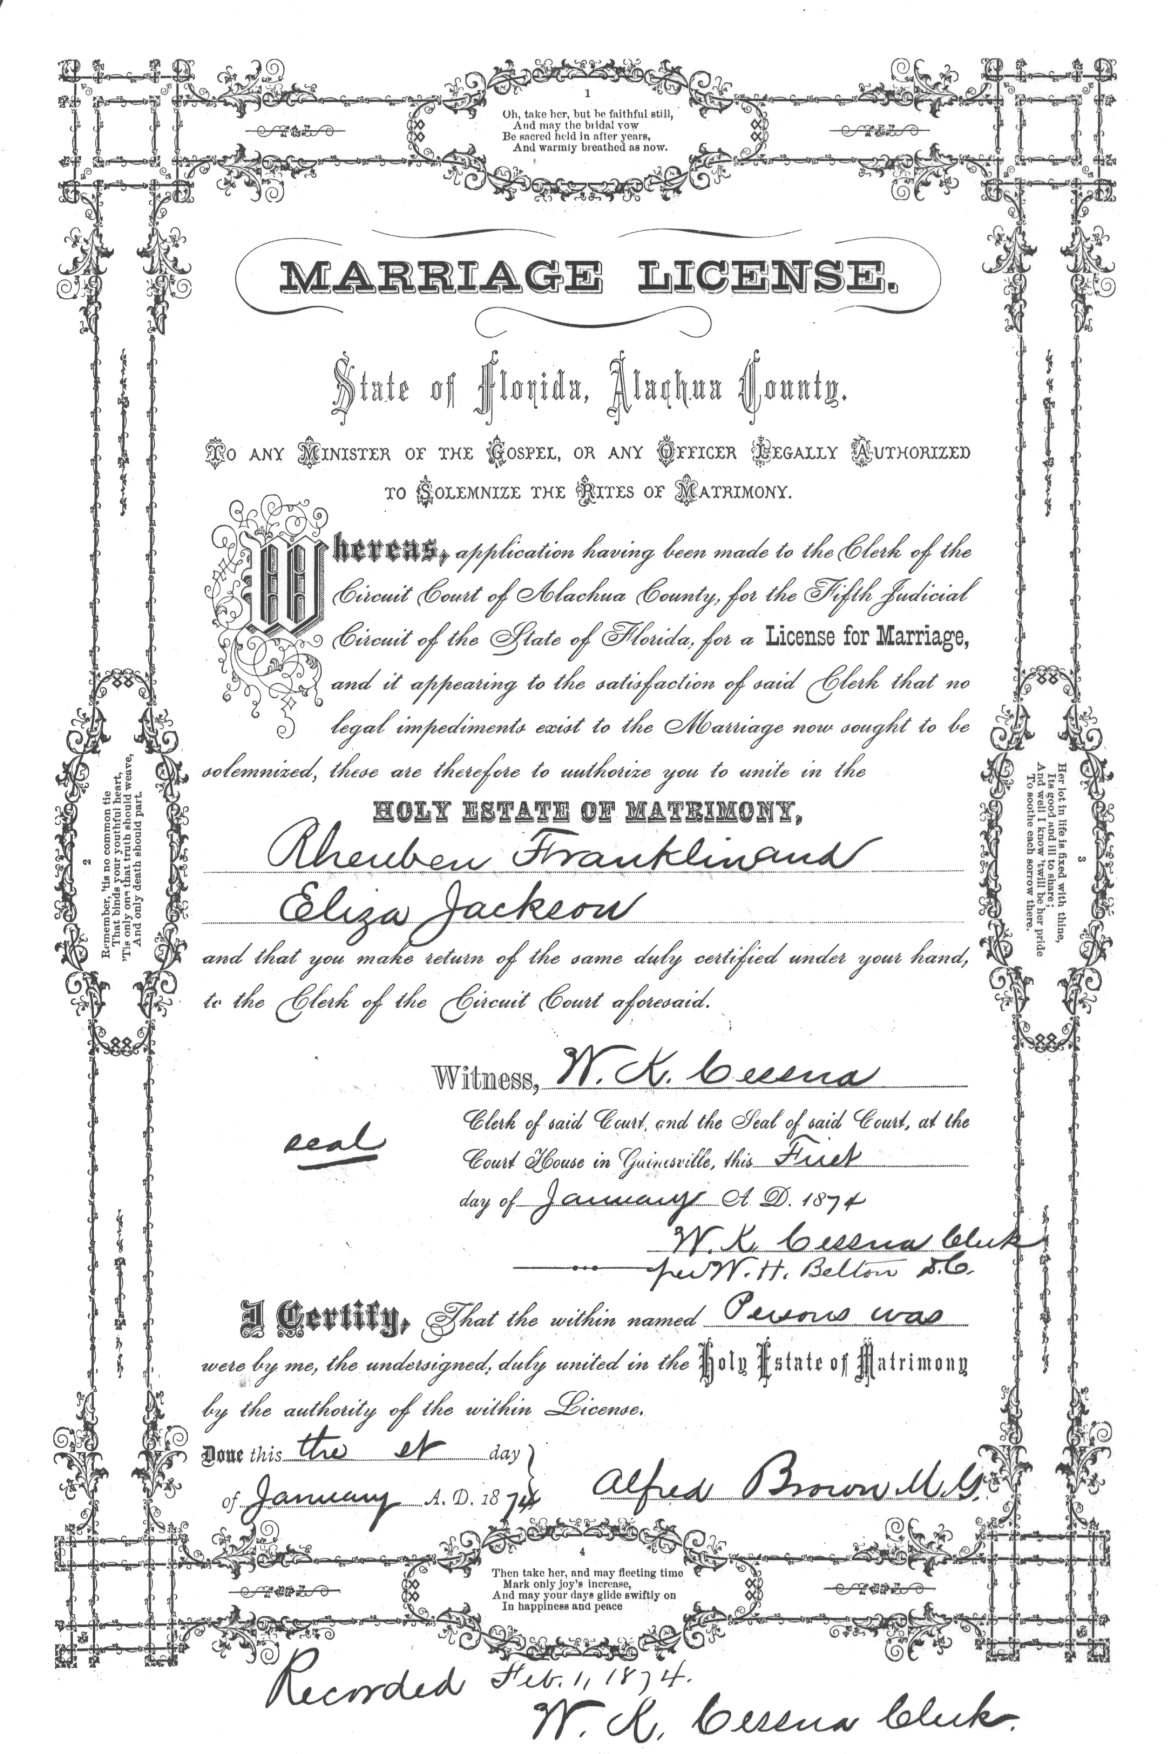 1
Oh, take her, but be faithful still,
And may the bridal vow
Be sacred held in after years,
And warmly breathed as now.
MARRIAGE LICENSE.
State of Florida, Alachua County.
TO ANY MINISTER OF THE GOSPEL, OR ANY OFFICER LEGALLY AUTHORIZED
TO SOLEMNIZE THE RITES OF MATRIMONY.
Whereas, application having been made to the Clerk of the
Circuit Court of Alachua County, for the Fifth Judicial
Circuit of the State of Florida, for a License for Marriage,
and it appearing to the satisfaction of said Clerk that no
legal impediments exist to the Marriage now sought to be
solemnized, these are therefore to authorize you to unite in the
HOLY ESTATE OF MATRIMONY,
Rheuben Franklin and
Eliza Jackson
and that you make return of the same duly certified under your hand,
to the Clerk of the Circuit Court aforesaid.
Witness, W. K. Cessna
Clerk of said Court, and the Seal of said Court, at the
seal
Court House in Gainesville, this First
day of January A. D. 1874
W. K. Cessna Clerk
per W. H. Belton D.C.
I Certify, That the within named Persons was
were by me, the undersigned, duly united in the Holy Estate of Matrimony
by the authority of the within License.
Done this the st day
of January A. D. 1874
Alfred Brown M. G.
2
Remember, 'tis no common tie
That binds your youthful heart,
'Tis only one that truth should weave,
And only death should part.
3
Her lot in life is fixed with thine,
Its good and ill to share;
And well I know 'twill be her pride
To soothe each sorrow there.
4
Then take her, and may fleeting time
Mark only joy's increase,
And may your days glide swiftly on
In happiness and peace
Recorded Feb. 1, 1874.
W. K. Cessna Clerk.